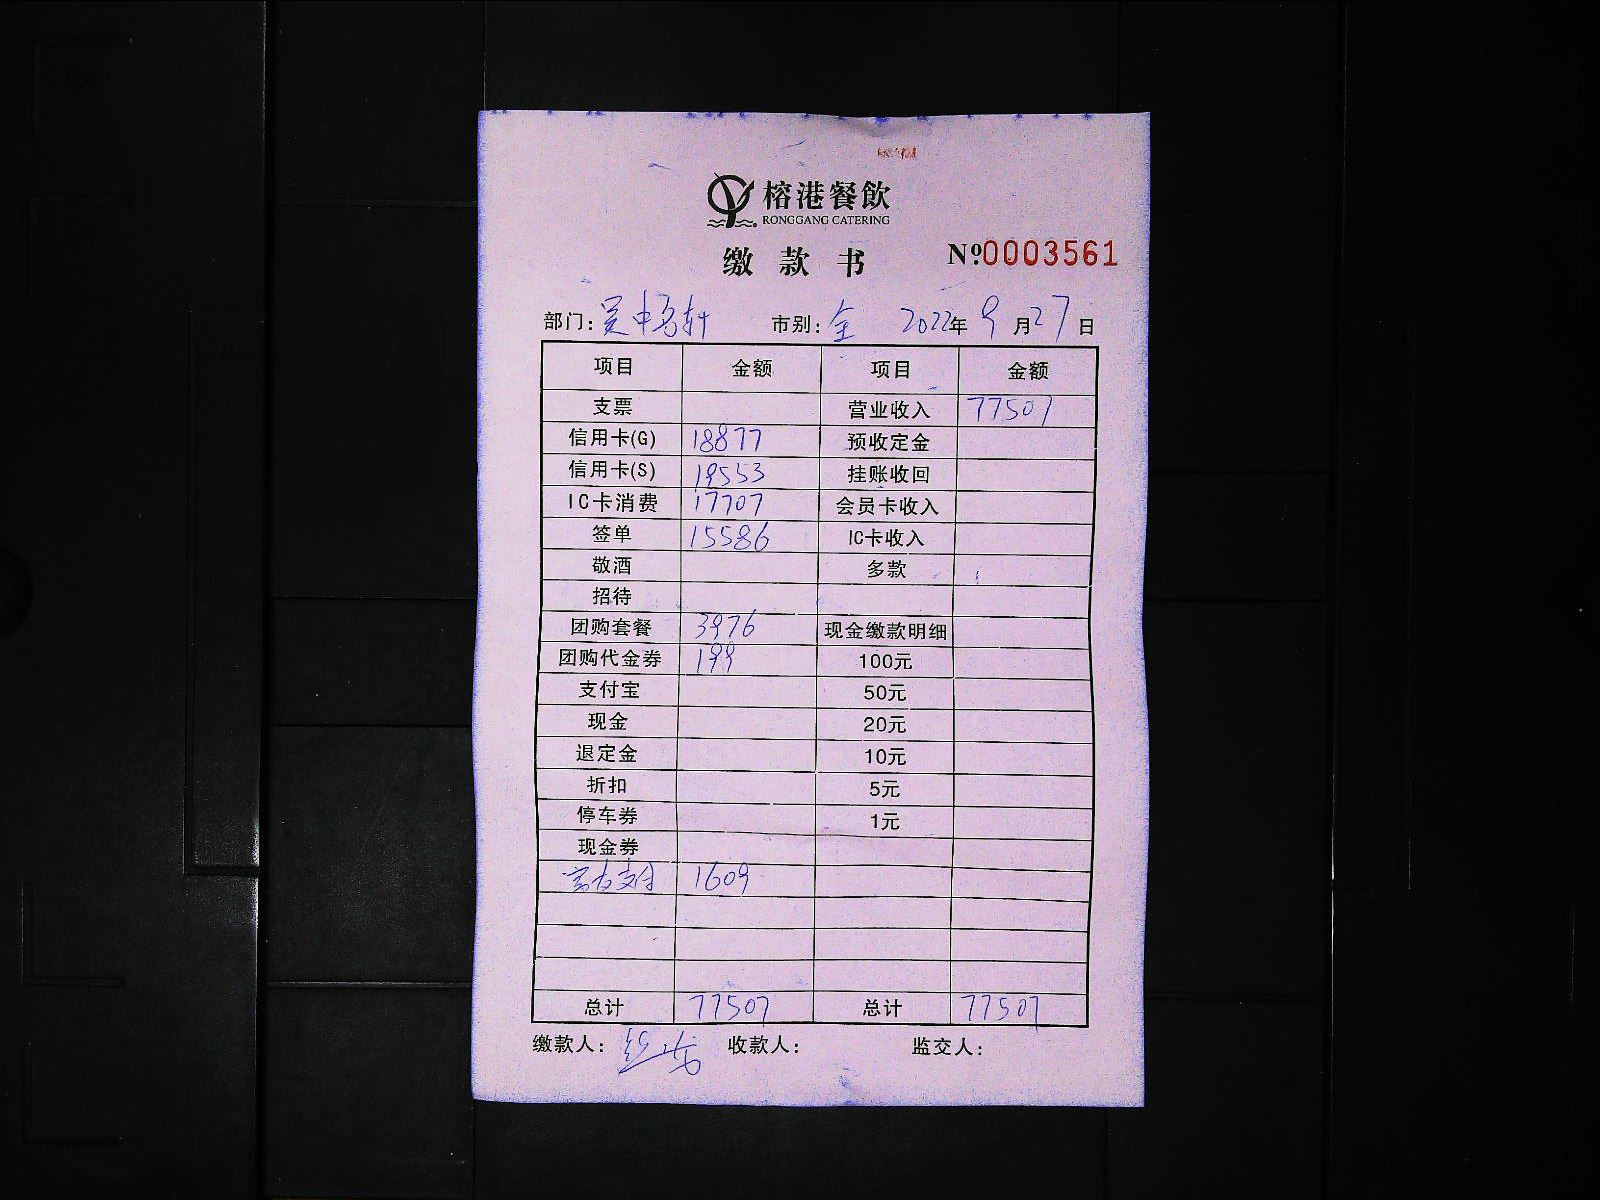 榕港餐飲
RONGGANG CATERING
缴款书 №0003561
部门: 吴中名轩 市别: 全 2022年 9月27日
项目 金额 项目 金额
支票 营业收入 77507
信用卡(G) 18877 预收定金
信用卡(S) 19553 挂账收回
IC卡消费 17707 会员卡收入
签单 15586 IC卡收入
敬酒 多款
招待
团购套餐 3976 现金缴款明细
团购代金券 199 100元
支付宝 50元
现金 20元
退定金 10元
折扣 5元
停车券 1元
现金券
支付 1609
总计 77507 总计 77507
缴款人: 收款人: 监交人: